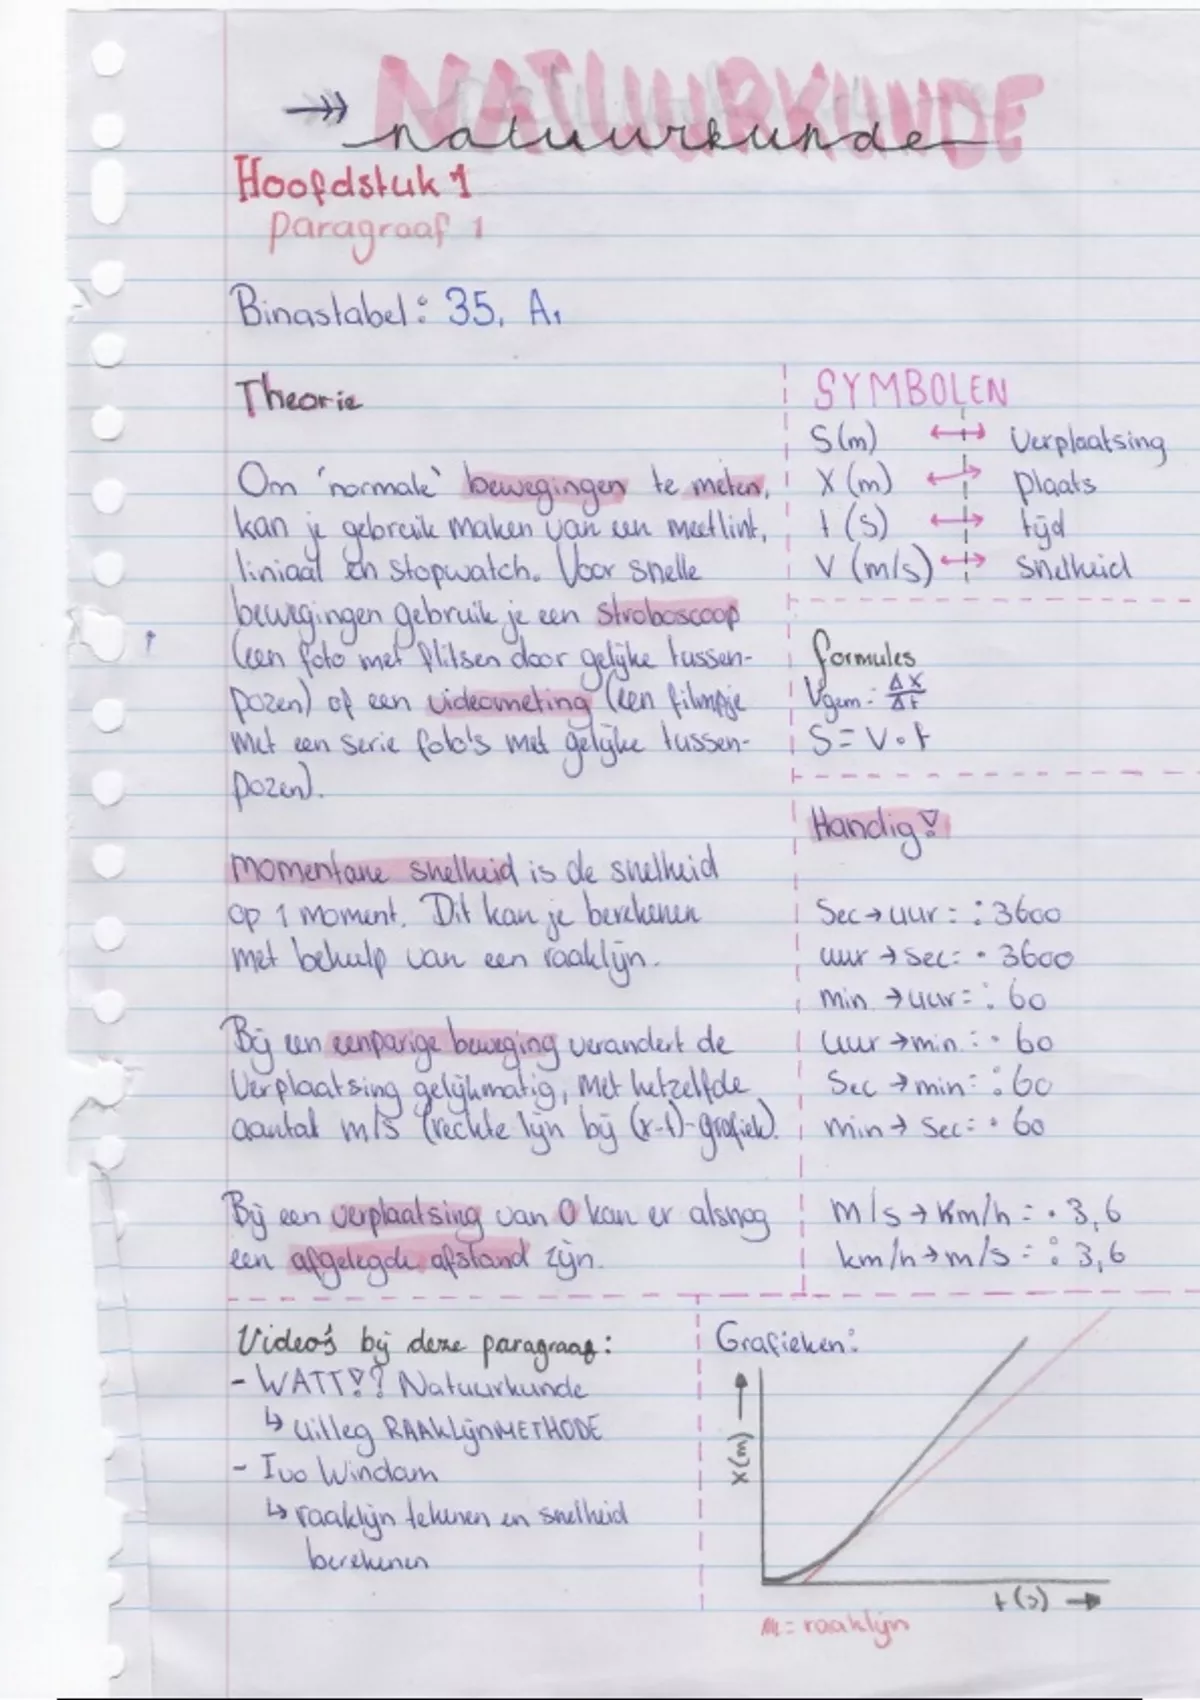 NATUURKUNDE
natuurkunde
Hoofdstuk 1
paragraaf 1
Binastabel: 35, A1
Theorie
Om 'normale' bewegingen te meten,
kan je gebruik maken van een meetlint,
liniaal en stopwatch. Voor snelle
bewegingen gebruik je een stroboscoop
(een foto met flitsen door gelijke tussen-
pozen) of een videometing (een filmpje
met een serie foto's met gelijke tussen-
pozen).
momentane snelheid is de snelheid
op 1 moment. Dit kan je berekenen
met behulp van een raaklijn.
Bij een eenparige beweging verandert de
verplaatsing gelijkmatig, met hetzelfde
aantal m/s (rechte lijn bij (x-t)-grafiek).
Bij een verplaatsing van 0 kan er alsnog
een afgelegde afstand zijn.
SYMBOLEN
S(m) ↔ Verplaatsing
X (m) ↔ plaats
t (s) ↔ tijd
V (m/s) ↔ snelheid
formules
Vgem = ΔX/Δt
S = V • t
Handig!
Sec → uur = : 3600
uur → sec = • 3600
min → uur = : 60
uur → min = • 60
Sec → min = : 60
min → sec = • 60
m/s → km/h = • 3,6
km/h → m/s = : 3,6
Video's bij deze paragraaf:
- WATT!? Natuurkunde
↳ uitleg RAAKLIJNMETHODE
- Ivo Windam
↳ raaklijn tekenen en snelheid
berekenen
Grafieken:
X(m) →
t(s) →
= raaklijn